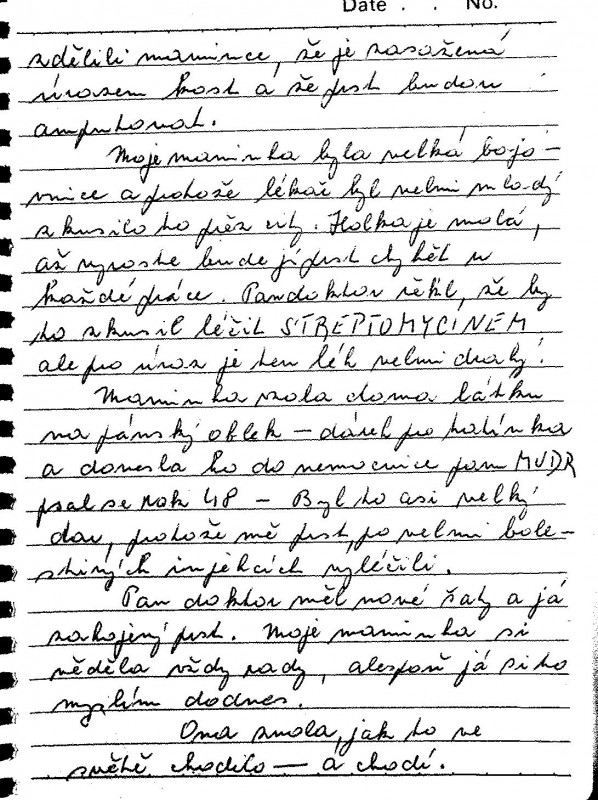 Date . . No.
sdělili mamince, že je zasažená
úrazem kost a že prst budou
amputovat.
Moje maminka byla velká bojo-
vnice a protože lékař byl velmi mladý
zkusila to přez city. Holka je malá,
až vyroste bude jí prst chybět u
každé práce. Pan doktor řekl, že by
to zkusil léčit STREPTOMYCINEM
ale pro úraz je ten lék velmi drahý!
Maminka vzala doma látku
na pánský oblek – dárek pro tatínka
a donesla ho do nemocnice panu MUDR
psal se rok 48 – Byl to asi velký
dar, protože mě prst, po velmi bole-
stivých injekcích vyléčili.
Pan doktor měl nové šaty a já
zahojený prst. Moje maminka si
věděla vždy rady, alespoň já si to
myslím dodnes.
Ona znala, jak to ve
světě chodilo — a chodí.